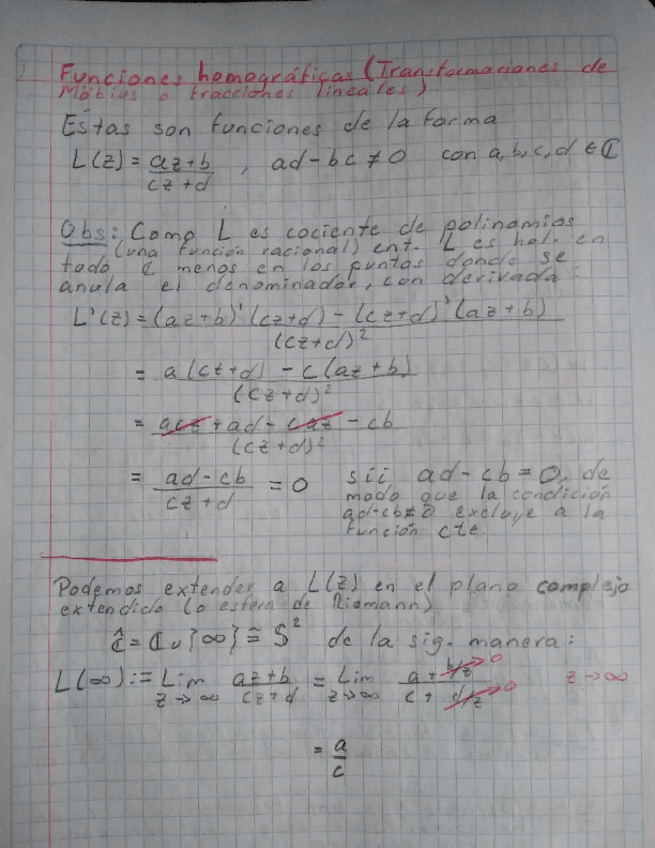 Funciones homográficas (Transformaciones de
Möbius o fracciones lineales)
Estas son funciones de la forma
L(z) = az+b / cz+d , ad-bc ≠ 0 con a,b,c,d ∈ ℂ
Obs: Como L es cociente de polinomios
(una función racional) ent. L es hol. en
todo ℂ menos en los puntos donde se
anula el denominador, con derivada:
L'(z) = (az+b)'(cz+d) - (cz+d)'(az+b) / (cz+d)²
= a(cz+d) - c(az+b) / (cz+d)²
= acz + ad - caz - cb / (cz+d)²
= ad-cb / cz+d = 0 sii ad-cb = 0, de
modo que la condición
ad-cb≠0 excluye a la
función cte.
Podemos extender a L(z) en el plano complejo
extendido (o esfera de Riemann)
Ĉ = ℂ ∪ {∞} ≅ S² de la sig. manera:
L(∞) := Lim z→∞ az+b / cz+d = Lim z→∞ a + b/z→0 / c + d/z→0 z→∞
= a / c